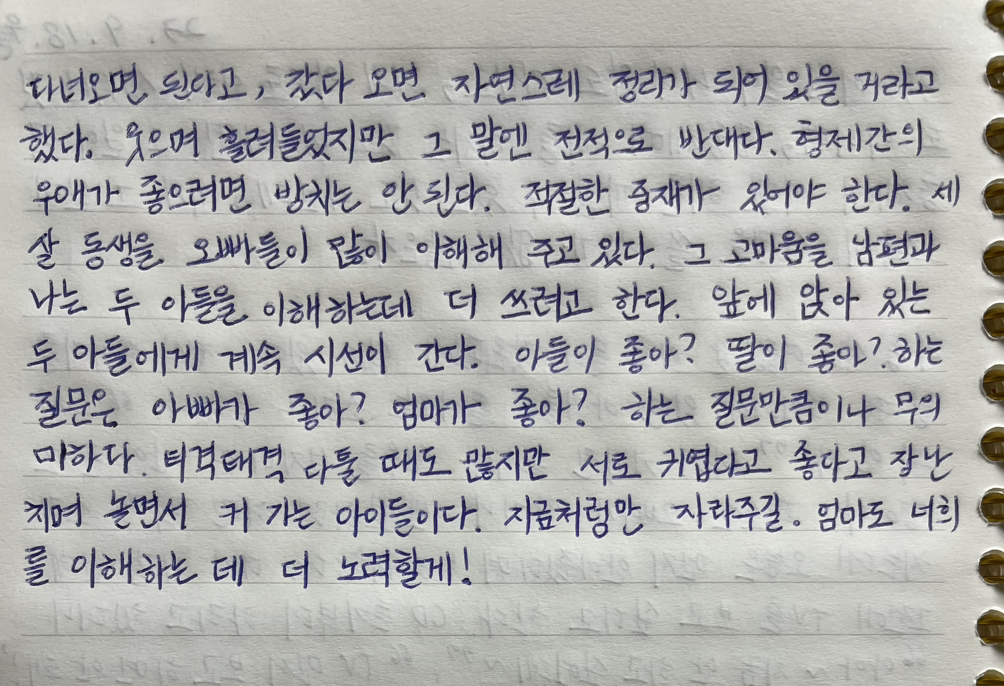 다녀오면 된다고, 갔다 오면 자연스레 정리가 되어 있을 거라고
했다. 웃으며 흘려들었지만 그 말엔 전적으로 반대다. 형제간의
우애가 좋으려면 방치는 안 된다. 적절한 중재가 있어야 한다. 세
살 동생을 오빠들이 많이 이해해 주고 있다. 그 고마움을 남편과
나는 두 아들을 이해하는데 더 쓰려고 한다. 앞에 앉아 있는
두 아들에게 계속 시선이 간다. 아들이 좋아? 딸이 좋아? 하는
질문은 아빠가 좋아? 엄마가 좋아? 하는 질문만큼이나 무의
미하다. 티격태격 다툴 때도 많지만 서로 귀엽다고 좋다고 장난
치며 놀면서 커 가는 아이들이다. 지금처럼만 자라주길. 엄마도 너희
를 이해하는 데 더 노력할게!